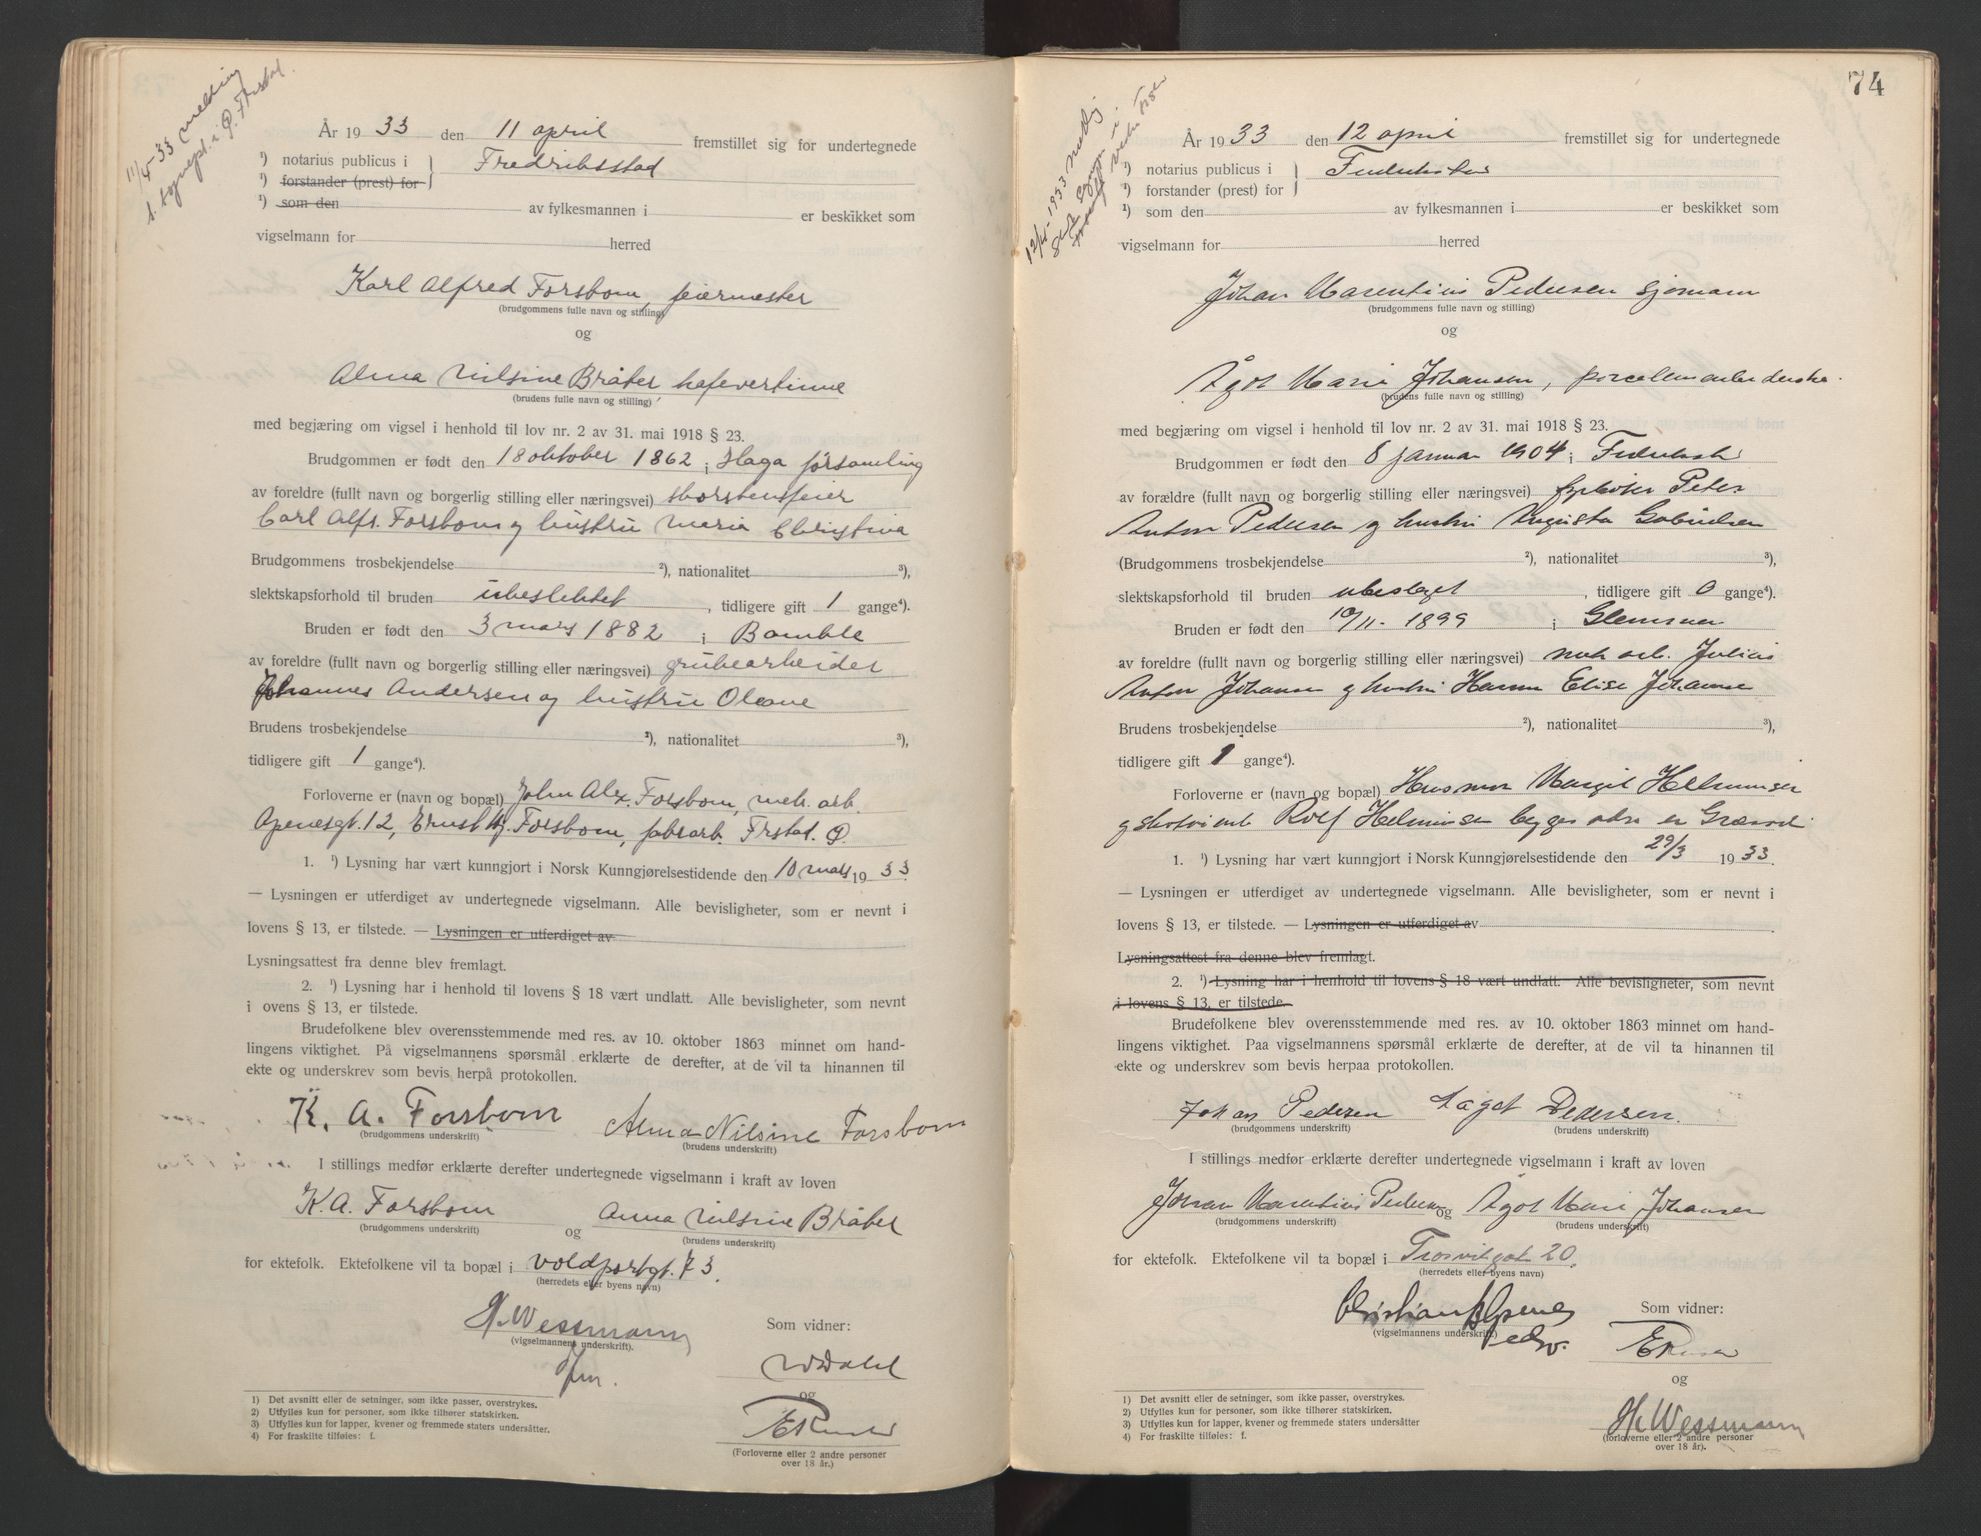 11/4-33 melding
t. sognepr. i Ø. Frstad.
År 1933 den 11 april fremstillet sig for undertegnede
¹) notarius publicus i Fredriksstad
¹) forstander (prest) for
¹) som den av fylkesmannen i er beskikket som
vigselmann for herred
Karl Alfred Forsbom, feiermester
(brudgommens fulle navn og stilling)
og
Alma Nilsine Bråter, kafevertinne
(brudens fulle navn og stilling)
med begjæring om vigsel i henhold til lov nr. 2 av 31. mai 1918 § 23.
Brudgommen er født den 18 oktober 1862 i Haga församling
av foreldre (fullt navn og borgerlig stilling eller næringsvei) skorstensfeier
Carl Alfr. Forsbom og hustru Maria Christina
Brudgommens trosbekjendelse ²), nationalitet ³),
slektskapsforhold til bruden ubeslektet, tidligere gift 1 gange⁴).
Bruden er født den 3 mars 1882 i Bamble
av foreldre (fullt navn og borgerlig stilling eller næringsvei) grubearbeider
Johannes Andersen og hustru Oleane
Brudens trosbekjendelse ²), nationalitet ³),
tidligere gift 1 gange⁴).
Forloverne er (navn og bopæl) John Alex. Forsbom, mek. arb.
Apenesgt. 12, Ernst Hj. Forsbom, fabrarb. Frstad. Ø.
1. ¹) Lysning har vært kunngjort i Norsk Kunngjørelsestidende den 10 mars 1933.
— Lysningen er utferdiget av undertegnede vigselmann. Alle bevisligheter, som er nevnt i
lovens § 13, er tilstede. — Lysningen er utferdiget av
Lysningsattest fra denne blev fremlagt.
2. ¹) Lysning har i henhold til lovens § 18 vært undlatt. Alle bevisligheter, som nevnt
i ovens § 13, er tilstede.
Brudefolkene blev overensstemmende med res. av 10. oktober 1863 minnet om hand-
lingens viktighet. På vigselmannens spørsmål erklærte de derefter, at de vil ta hinannen til
ekte og underskrev som bevis herpå protokollen.
K. A. Forsbom Alma Nilsine Forsbom
(brudgommens underskrift) (brudens underskrift)
I stillings medfør erklærte derefter undertegnede vigselmann i kraft av loven
K. A. Forsbom og Alma Nilsine Bråter
(brudgommens underskrift) (brudens underskrift)
for ektefolk. Ektefolkene vil ta bopæl i Voldportgt. 73.
(herredets eller byens navn)
H. Wessmann
(vigselmannens underskrift).
Som vidner:
W Dahl
og
(Forloverne eller 2 andre personer
over 18 år.)
1) Det avsnitt eller de setninger, som ikke passer, overstrykes.
2) Utfylles kun for personer, som ikke tilhører statskirken.
3) Utfylles kun for lapper, kvener og fremmede staters undersåtter.
4) For fraskilte tilføies: f.
74
12/4-1933
År 1933 den 12 april fremstillet sig for undertegnede
¹) notarius publicus i Fredrikstad
¹) forstander (prest) for
¹) som den av fylkesmannen i er beskikket som
vigselmann for herred
Johan Marentius Pedersen sjømann
(brudgommens fulle navn og stilling)
og
Ågot Marie Johansen, porcellensarbeiderske.
(brudens fulle navn og stilling)
med begjæring om vigsel i henhold til lov nr. 2 av 31. mai 1918 § 23.
Brudgommen er født den 8 januar 1904 i Fredrikstad
av forældre (fullt navn og borgerlig stilling eller næringsvei) fyrbøter Peter
Anton Pedersen og hustru Augusta Gabrielsen
(Brudgommens trosbekjendelse ²), nationalitet ³),
slektskapsforhold til bruden ubeslegtet, tidligere gift 0 gange⁴).
Bruden er født den 10/11-1899 i Glemmen
av foreldre (fullt navn og borgerlig stilling eller næringsvei) mek arb. Julius
Anton Johansen og hustru Hanna Elise Johansen
Brudens trosbekjendelse ²), nationalitet ³),
tidligere gift 1 gange⁴).
Forloverne er (navn og bopæl) Husmor Margit Helminsen
Rolf Helminsen begges adr. er Græsvik
1. ¹) Lysning har vært kunngjort i Norsk Kunngjørelsestidende den 29/3 1933.
— Lysningen er utferdiget av undertegnede vigselmann. Alle bevisligheter, som er nevnt i
lovens § 13, er tilstede. — Lysningen er utferdiget av
Lysningsattest fra denne blev fremlagt.
2. ¹) Lysning har i henhold til lovens § 18 vært undlatt. Alle bevisligheter, som nevnt
i lovens § 13, er tilstede.
Brudefolkene blev overensstemmende med res. av 10. oktober 1863 minnet om hand-
lingens viktighet. Paa vigselmannens spørsmål erklærte de derefter, at de vil ta hinannen til
ekte og underskrev som bevis herpaa protokollen.
Johan Pedersen Aagot Pedersen.
(brudgommens underskrift) (brudens underskrift)
I stillings medfør erklærte derefter undertegnede vigselmann i kraft av loven
Johan Marentius Pedersen og Ågot Marie Johansen
(brudgommens underskrift) (brudens underskrift)
for ektefolk. Ektefolkene vil ta bopæl i Trosvikgat 20.
(herredets eller byens navn)
Christian
(vigselmannens underskrift)
Som vidner:
og
H. Wessmann
(forloverne eller 2 andre personer
over 18 år).
1) Det avsnitt eller de setninger, som ikke passer, overstrykes.
2) Utfylles kun for personer, som ikke tilhører statskirken.
3) Utfylles kun for lapper, kvener og fremmede staters undersåtter
4) For fraskilte tilføies: f.